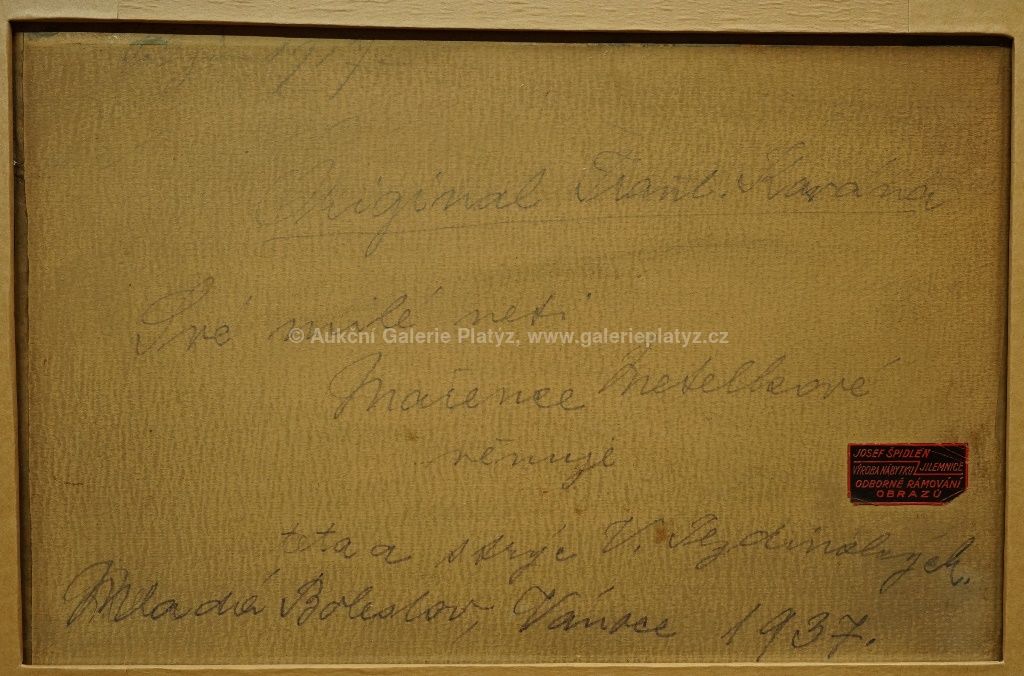 1917
Originál Frant. Kavána
Své milé neti
© Aukční Galerie Platýz, www.galerieplatyz.cz
Mařence Metelkové
věnuje
JOSEF ŠPIDLEN
VÝROBA NÁBYTKU JILEMNICE
ODBORNÉ RÁMOVÁNÍ
OBRAZŮ
teta a strýc V.
Mladá Boleslav, Vánoce 1937.